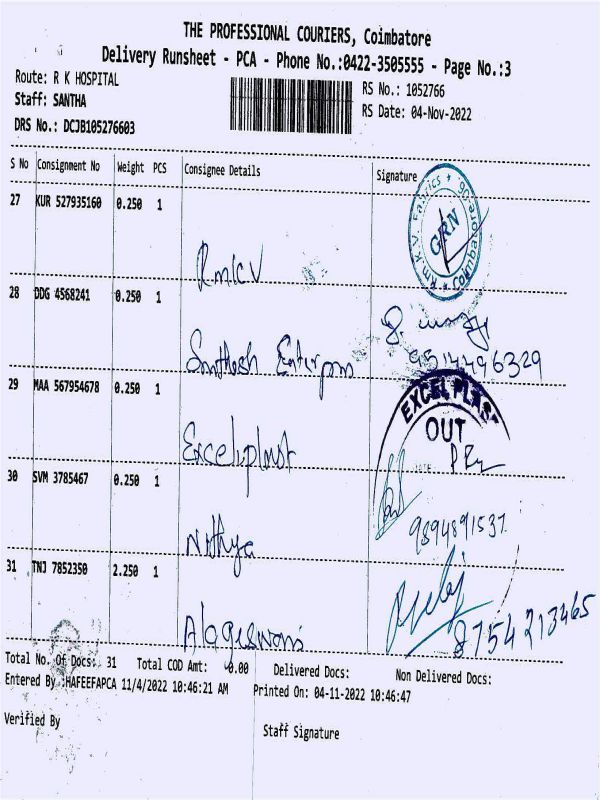 THE PROFESSIONAL COURIERS, Coimbatore
Delivery Runsheet - PCA - Phone No.:0422-3505555 - Page No.:3
Route: R K HOSPITAL
RS No.: 1052766
Staff: SANTHA
RS Date: 04-Nov-2022
DRS No.: DCJB105276603
S No Consignment No Weight PCS Consignee Details Signature
27 KUR 527935160 0.250 1
R.m.K.V. Fabrics * Coimbatore
GRN
Rmkv
28 DDG 4568241 0.250 1
Santhosh
9514496329
29 MAA 567954678 0.250 1
EXCEL PLAS
OUT
Excel plast
30 SVM 3785467 0.250 1
9894891537
Nithya
31 TNJ 7852350 2.250 1
8754213465
Alageswari
Total No. Of Docs: 31 Total COD Amt: 0.00 Delivered Docs: Non Delivered Docs:
Entered By :HAFEEFAPCA 11/4/2022 10:46:21 AM Printed On: 04-11-2022 10:46:47
Verified By
Staff Signature